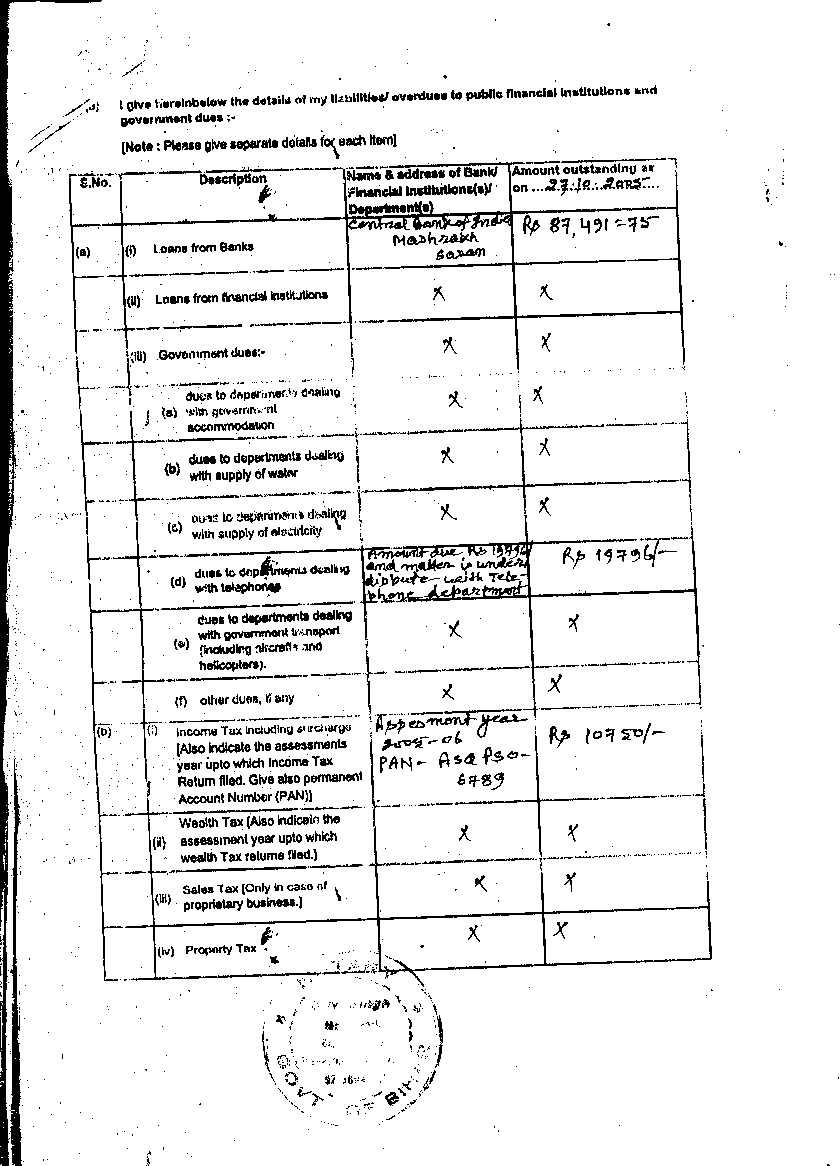 I give hereinbelow the details of my liabilities/ overdues to public financial institutions and
government dues :-
[Note : Please give separate details for each item]
S.No.
Description
Name & address of Bank/
Financial Institutions(s)/
Department(s)
Amount outstanding as
on ...27.10.2005....
(a)
(i) Loans from Banks
Central Bank of India
Mashrakh
Saran
Rs 87,491=75
(ii) Loans from financial institutions
X
X
(iii) Government dues:-
X
X
(a)
dues to departments dealing
with government
accommodation
X
X
(b)
dues to departments dealing
with supply of water
X
X
(c)
dues to departments dealing
with supply of electricity
X
X
(d)
dues to departments dealing
with telephones
Amount due Rs 19796/
and matter is under
dispute with Tele
phone department
Rs 19796/-
(e)
dues to departments dealing
with government transport
(including aircrafts and
helicopters).
X
X
(f) other dues, if any
X
X
(b)
(i)
Income Tax including surcharge
[Also indicate the assessments
year upto which Income Tax
Return filed. Give also permanent
Account Number (PAN)]
Assesment year
2005-06
PAN-
6789
Rs 10750/-
(ii)
Wealth Tax [Also indicate the
assessment year upto which
wealth Tax returns filed.]
X
X
(iii)
Sales Tax [Only in case of
proprietary business.]
X
X
(iv) Property Tax
X
X